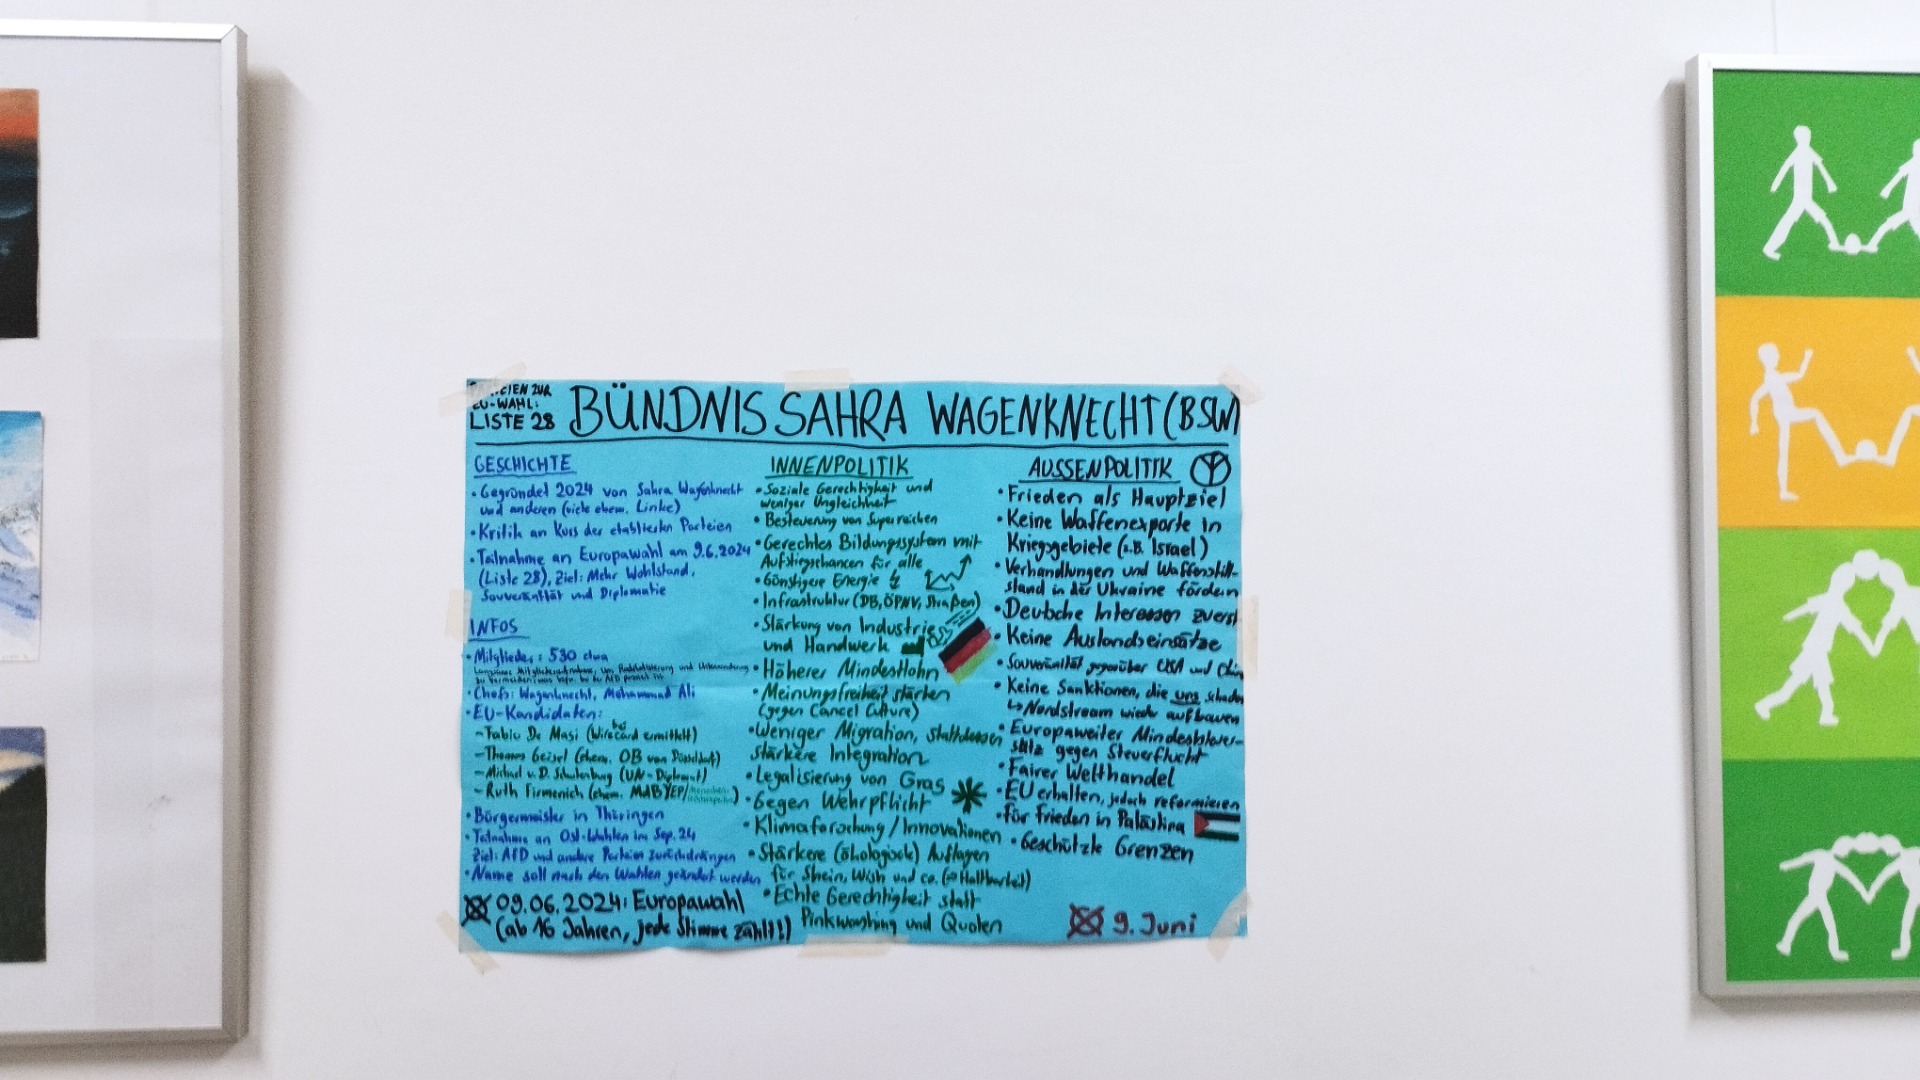 PARTEIEN ZUR
EU-WAHL:
LISTE 28
BÜNDNIS SAHRA WAGENKNECHT (BSW)
GESCHICHTE
• Gegründet 2024 von Sahra Wagenknecht
und anderen (viele ehem. Linke)
• Kritik an Kurs der etablierten Parteien
• Teilnahme an Europawahl am 9.6.2024
(Liste 28), Ziel: Mehr Wohlstand,
Souveränität und Diplomatie
INFOS
• Mitglieder: 530 etwa
Langsame Mitgliederaufnahme, um Radikalisierung und Unterwanderung
zu vermeiden, was bei der AfD passiert ist
• Chefs: Wagenknecht, Mohammad Ali
• EU-Kandidaten:
- Fabio De Masi (bei Wirecard ermittelt)
- Thomas Geisel (ehem. OB von Düsseldorf)
- Michael v. D. Schulenburg (UN-Diplomat)
- Ruth Firmenich (ehem. MAB YEP/
• Bürgermeister in Thüringen
• Teilnahme an Ost-Wahlen im Sep. 24
Ziel: AfD und andere Parteien zurückdrängen
• Name soll nach den Wahlen geändert werden
09.06.2024: Europawahl
(ab 16 Jahren, jede Stimme zählt!)
INNENPOLITIK
• Soziale Gerechtigkeit und
weniger Ungleichheit
• Besteuerung von Superreichen
• Gerechtes Bildungssystem mit
Aufstiegschancen für alle
• Günstigere Energie
• Infrastruktur (DB, ÖPNV, Straßen)
• Stärkung von Industrie
und Handwerk
• Höherer Mindestlohn
• Meinungsfreiheit stärken
(gegen Cancel Culture)
• Weniger Migration, stattdessen
stärkere Integration
• Legalisierung von Gras
• Gegen Wehrpflicht
• Klimaforschung/Innovationen
• Stärkere (ökologisch) Auflagen
für Shein, Wish und co. (⇒ Haltbarkeit)
• Echte Gerechtigkeit statt
Pinkwashing und Quoten
AUSSENPOLITIK
• Frieden als Hauptziel
• Keine Waffenexporte in
Kriegsgebiete (z.B. Israel)
• Verhandlungen und Waffenstill-
stand in der Ukraine fördern
• Deutsche Interessen zuerst
• Keine Auslandseinsätze
• Souveränität gegenüber USA und China
• Keine Sanktionen, die uns schaden
↳ Nordstream wieder aufbauen
• Europaweiter Mindeststeuer-
satz gegen Steuerflucht
• Fairer Welthandel
• EU erhalten, jedoch reformieren
• für Frieden in Palästina
• Geschützte Grenzen
9. Juni